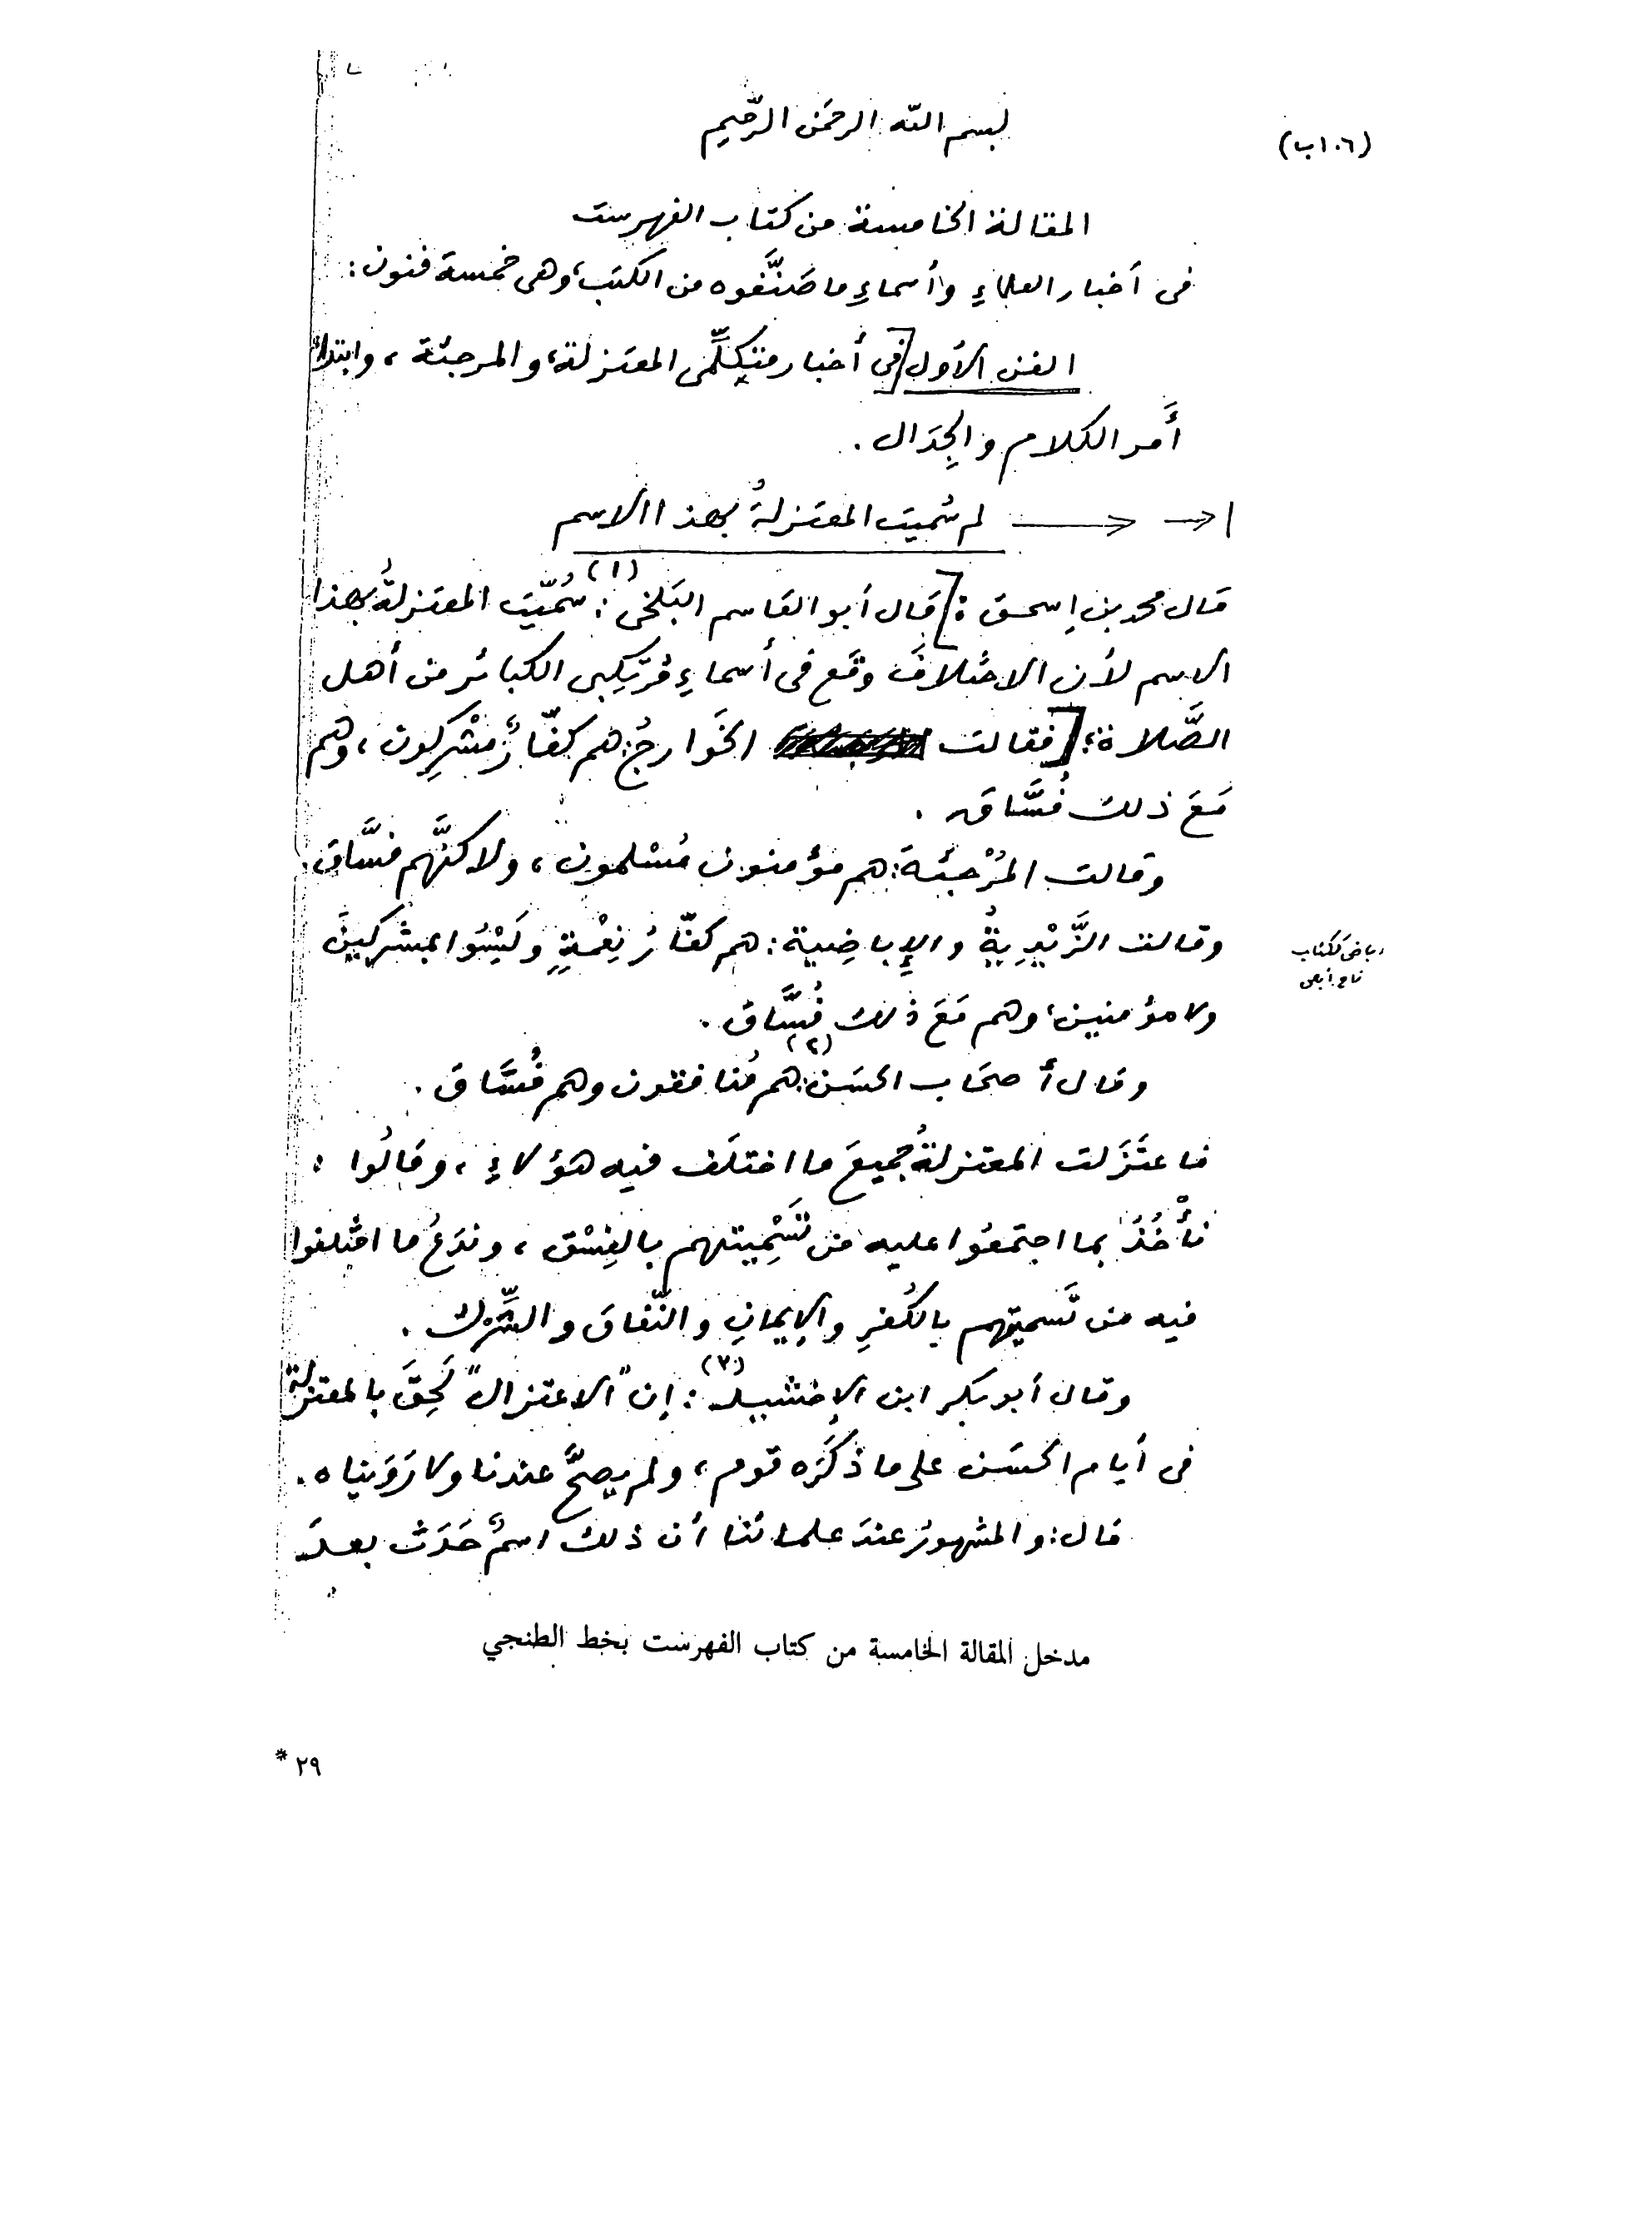 (١٠٦ب)
بسم الله الرحمَن الرّحِيمِ
المقالة الخامسة من كتاب الفهرست
فى أخبار العلماءِ وأسماءِ ما صَنَّفوه من الكتب، وهى خمسة فنون:
الفن الأول [فى أخبار متكلِّمى المعتزلة، والمرجئة، وابتداء
أَمر الكلام والجِدَال.
لم سُميت المعتزلةُ بهذا الاسم
قال محمد بن إسحق: [قال أبو القاسم البَلخى (١): سُمِّيَت المعتزلةُ بهذا
الاسم لأن الاختلافَ وقَع فى أسماءِ مُرتَكِبى الكبائر من أهل
الصَّلاة؛ [فقالت الخَوارجُ: هم كفّارٌ مُشْرِكون، وهم
مَعَ ذلك فُسَّاق.
وقالت المُرْجئة: هم مؤمنون مُسْلمون، ولاكنَّهم فسَّاق.
وقالت الزَّيْدِيةُ والإِباضِية: هم كفّارُ نِعْمَةٍ ولَيْسُوا بمشركِينَ
ولا مؤمنين، وهم مَعَ ذلك فُسَّاق.
وقال أصحَاب الحسَن (٢): هم مُنافقون وهم فُسَّاق.
فاعتَزَلت المعتزلةُ جميعَ ما اختلَف فيه هؤلاءِ، وقالُوا:
نأْخُذُ بما اجتمعُوا عليه من تَسْمِيتهم بالفِسْق، وندَعُ ما اختلفوا
فيه من تَسميتهم بالكُفرِ والإيمانِ والنّفاق والشِّرك.
وقال أبو بكر ابن الإخشيد (٣): إن "الاعتزال" لَحِقَ بالمعتزلة
فى أيام الحسَن على ما ذكَرَه قوم، ولم يصحَّ عندنا ولا رَوَيناه.
قال: والمشهورُ عندَ علمائنا أن ذلك اسمٌ حَدَث بعدَ
مدخل المقالة الخامسة من كتاب الفهرست بخط الطنجي
٢٩ *